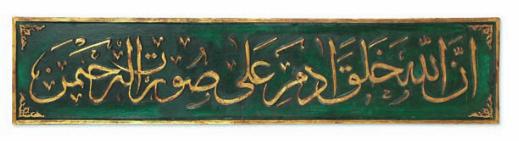 ان الله خلق ادم على صورت الرحمن